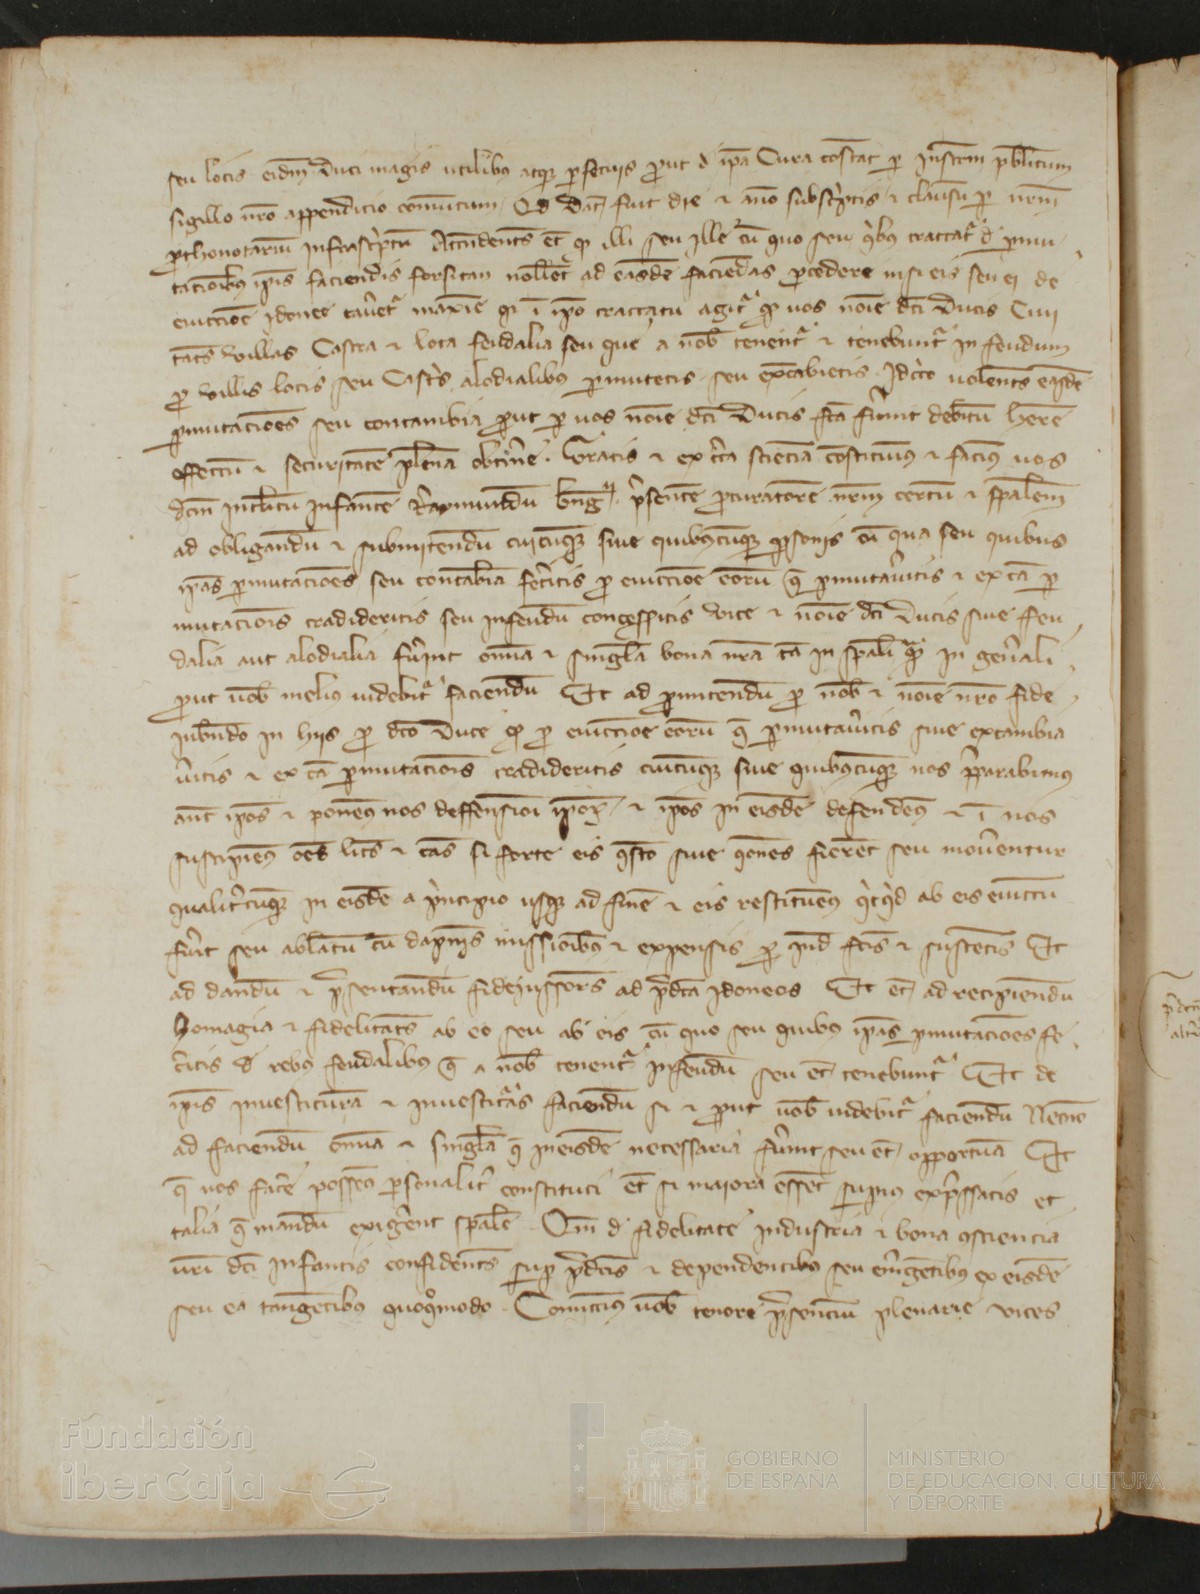 seu locis eidm Duci magis utilibus atque persecuis prout d ipa Cura constat per Instrm publicum
sigillo nro appendicio comunitum Qd Dat fuit die et ano subscriptis et clausu per nrm
prothonotarium infrascriptu Attendents et qd illi seu ille cu quo seu qibus tractatr d pmu
tacionibus ipis faciendis forsitan nollent ad easde faciendas procedere nisi eis seu ei de
eviccioe idonee cavetr maxie qr i ipo tractatu agitr qd vos noie dci Ducis Civi
tats villas Castra et loca feudalia seu que a nob tenentr et tenebuntr in feudum
pro villis locis seu Castris alodialibus permutetis seu excabietis Idcirco volents easde
permutaciones seu concambia prout per vos noie dci Ducis fca fuerint debitu here
effectu et securitate plena obtine Gratis et ex certa sciencia constituimus et facimus vos
dcm inclitu infante Raymundu presente procuratore nrm certu et spalem
ad obligandu et submitendu cuicuque sive quibuscuque personis cu qua seu quibus
ipas permutaciones seu concabia feceritis pro eviccioe eoru que permutaveritis et ex ca per
mutacionis tradideritis seu infeudu concesseritis vice et noie dci Ducis sive feu
dalia aut alodialia fuerint omnia et singula bona nra ta in spali qm in generali
prout vob melius videbitr faciendu Et ad promitendu pro nob et noie nro fide
iubendo in hiis pro dco Duce qd pro eviccioe eoru que permutaveritis sive excambia
veritis et ex ca permutacionis tradideritis cuicuque sive quibuscuque nos preparabimus
ant ipos et ponems nos deffensioi ipor et ipos in eisde defendems et i nos
suscipiems oes lits et cas si forte eis qsto sive qones fierent seu moverentur
qualitercuque in eisde a principio usque ad fine et eis restituems qicqid ab eis evictu
fuerit seu ablatu cu dapnis missionibus et expensis per ind fcis et sustentis Et
ad dandu et presentandu fideiussors ad predca idoneos Et et ad recipiendu
homagia et fidelitats ab eo seu ab eis cu quo seu quibus ipas permutaciones fe
ceritis d rebus feudalibus que a nob tenentr in feudu seu et tenebuntr Et de
ipis investitura et investituras faciendu si et prout vob videbitr faciendu Necno
ad faciendu omnia et singula que in eisde necessaria fuerint seu et opportuna Et
que nos facere possems personaliter constituti et si maiora essent superius expressatis et
talia que mandu exigerent spale Qm d fidelitate industria et bona consciencia
vri dci infantis confidents super predcis et dependentibus seu emergetibus ex eisde
seu ea tangetibus quoquomodo Comittimus vob tenore presentium plenarie vices